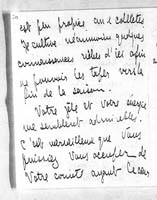 est peu propice aux collectes
Je cultive néanmoins quelques
connaissances utiles d'ici afin
de pouvoir les types vers la
fin de la saison.
Votre zèle et votre énergie
me semblent admirables.
C'est merveilleux que Vous
puissiez Vous occuper de
Votre comité ayant